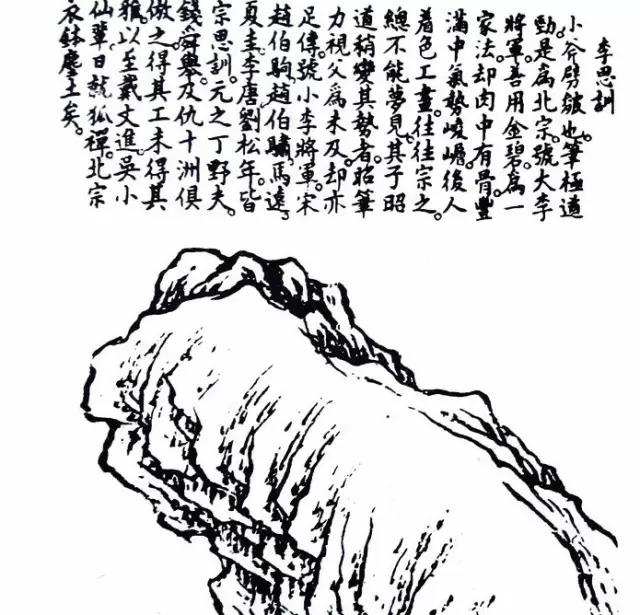 李思訓
小斧劈皴也。筆極遒
勁。是爲北宗。號大李
將軍。善用金碧。爲一
家法。却肉中有骨。豐
滿中氣勢峻嶒。後人
着色工畫。往往宗之。
總不能夢見。其子昭
道。稍變其勢者。昭筆
力視父爲未及。却亦
足傳。號小李將軍。宋
趙伯駒。趙伯驌。馬遠。
夏圭。李唐。劉松年。皆
宗思訓。元之丁野夫。
錢舜舉。及仇十洲俱
倣之。得其工。未得其
雅。以至戴文進。吳小
仙輩。日就狐禪。北宗
衣鉢塵土矣。